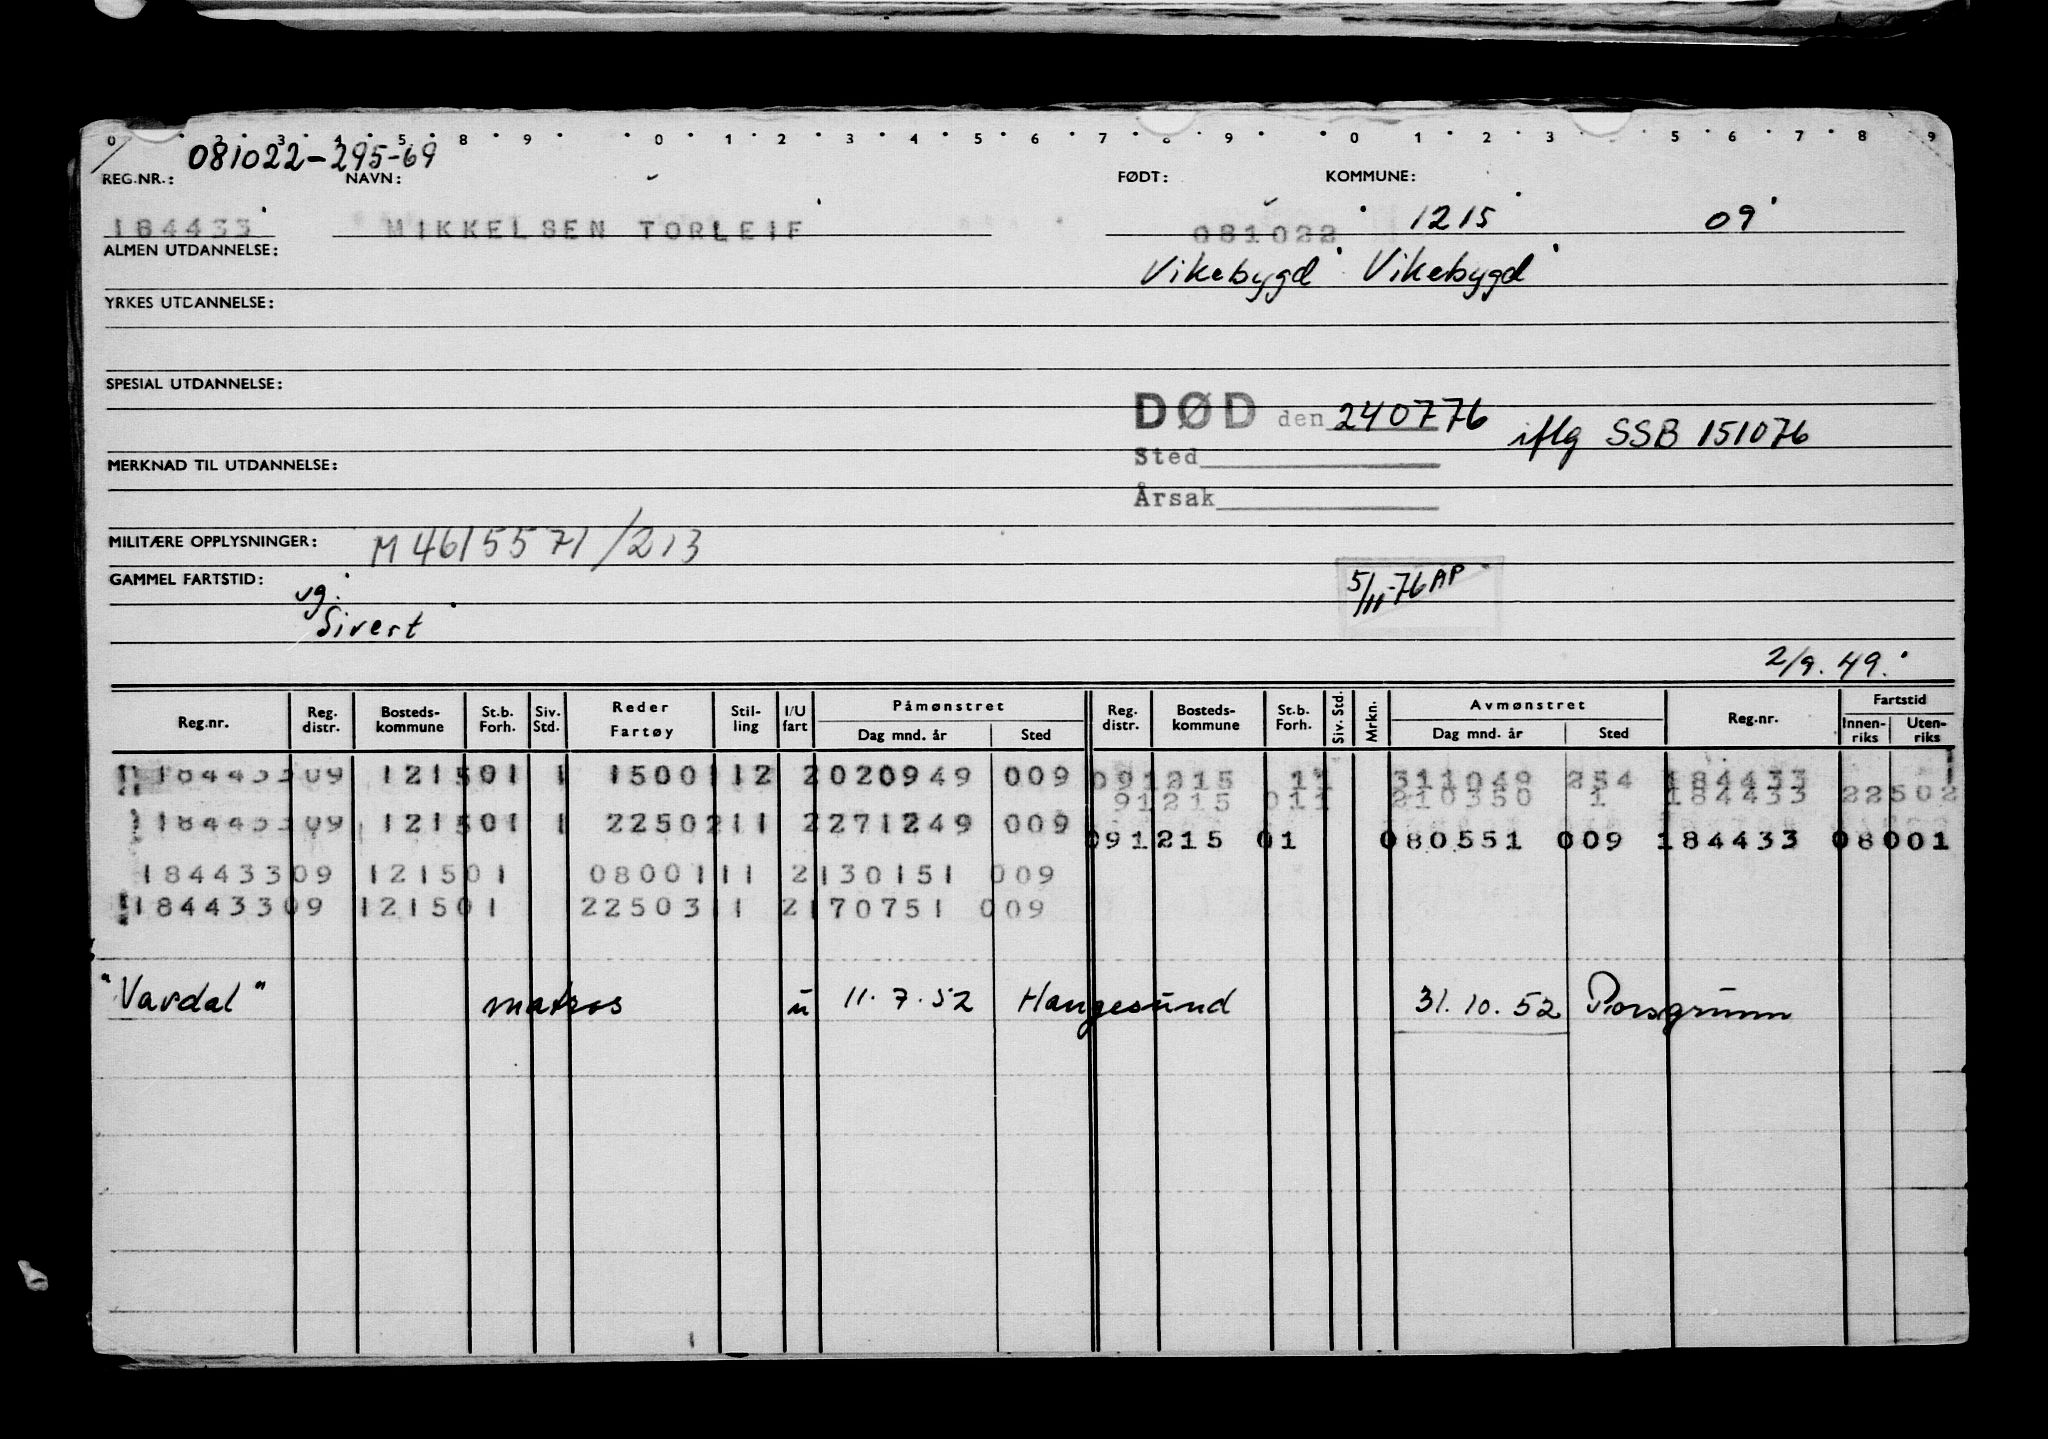 0 2 3 4 5 8 9 0 1 2 3 4 5 6 7 8 9 0 1 2 3 5 6 7 8 9
081022-295-69
REG.NR.: NAVN: FØDT: KOMMUNE:
184433 MIKKELSEN TORLEIF 081022 1215 09
ALMEN UTDANNELSE: Vikebygd Vikebygd
YRKES UTDANNELSE:
SPESIAL UTDANNELSE:
DØD den 240776 iflg SSB 151076
Sted
MERKNAD TIL UTDANNELSE:
Årsak
MILITÆRE OPPLYSNINGER: M 4615571/213
GAMMEL FARTSTID: vg. 5/11-76 AP
Sivert
2/9. 49.
Reg.nr. Reg. distr. Bosteds- kommune St.b. Forh. Siv. Std. Reder Fartøy Stil- ling I/U fart Påmønstret Dag mnd. år Sted Reg. distr. Bosteds- kommune St.b. Forh. Siv. Std. Mrkn. Avmønstret Dag mnd. år Sted Reg.nr. Fartstid Innen- riks Uten- riks
184433 09 1215 01 1 1500112 2 020949 009 09 1215 11 311049 254 184433
9 1215 011 210350 1 184433 22502
184433 09 1215 01 1 2250211 2 271249 009
09 1215 01 080551 009 184433 08001
184433 09 1215 01 0800111 2 130151 009
184433 09 1215 01 2250311 2 170751 009
"Vardal" matros u 11.7.52 Haugesund 31.10.52 Porsgrunn